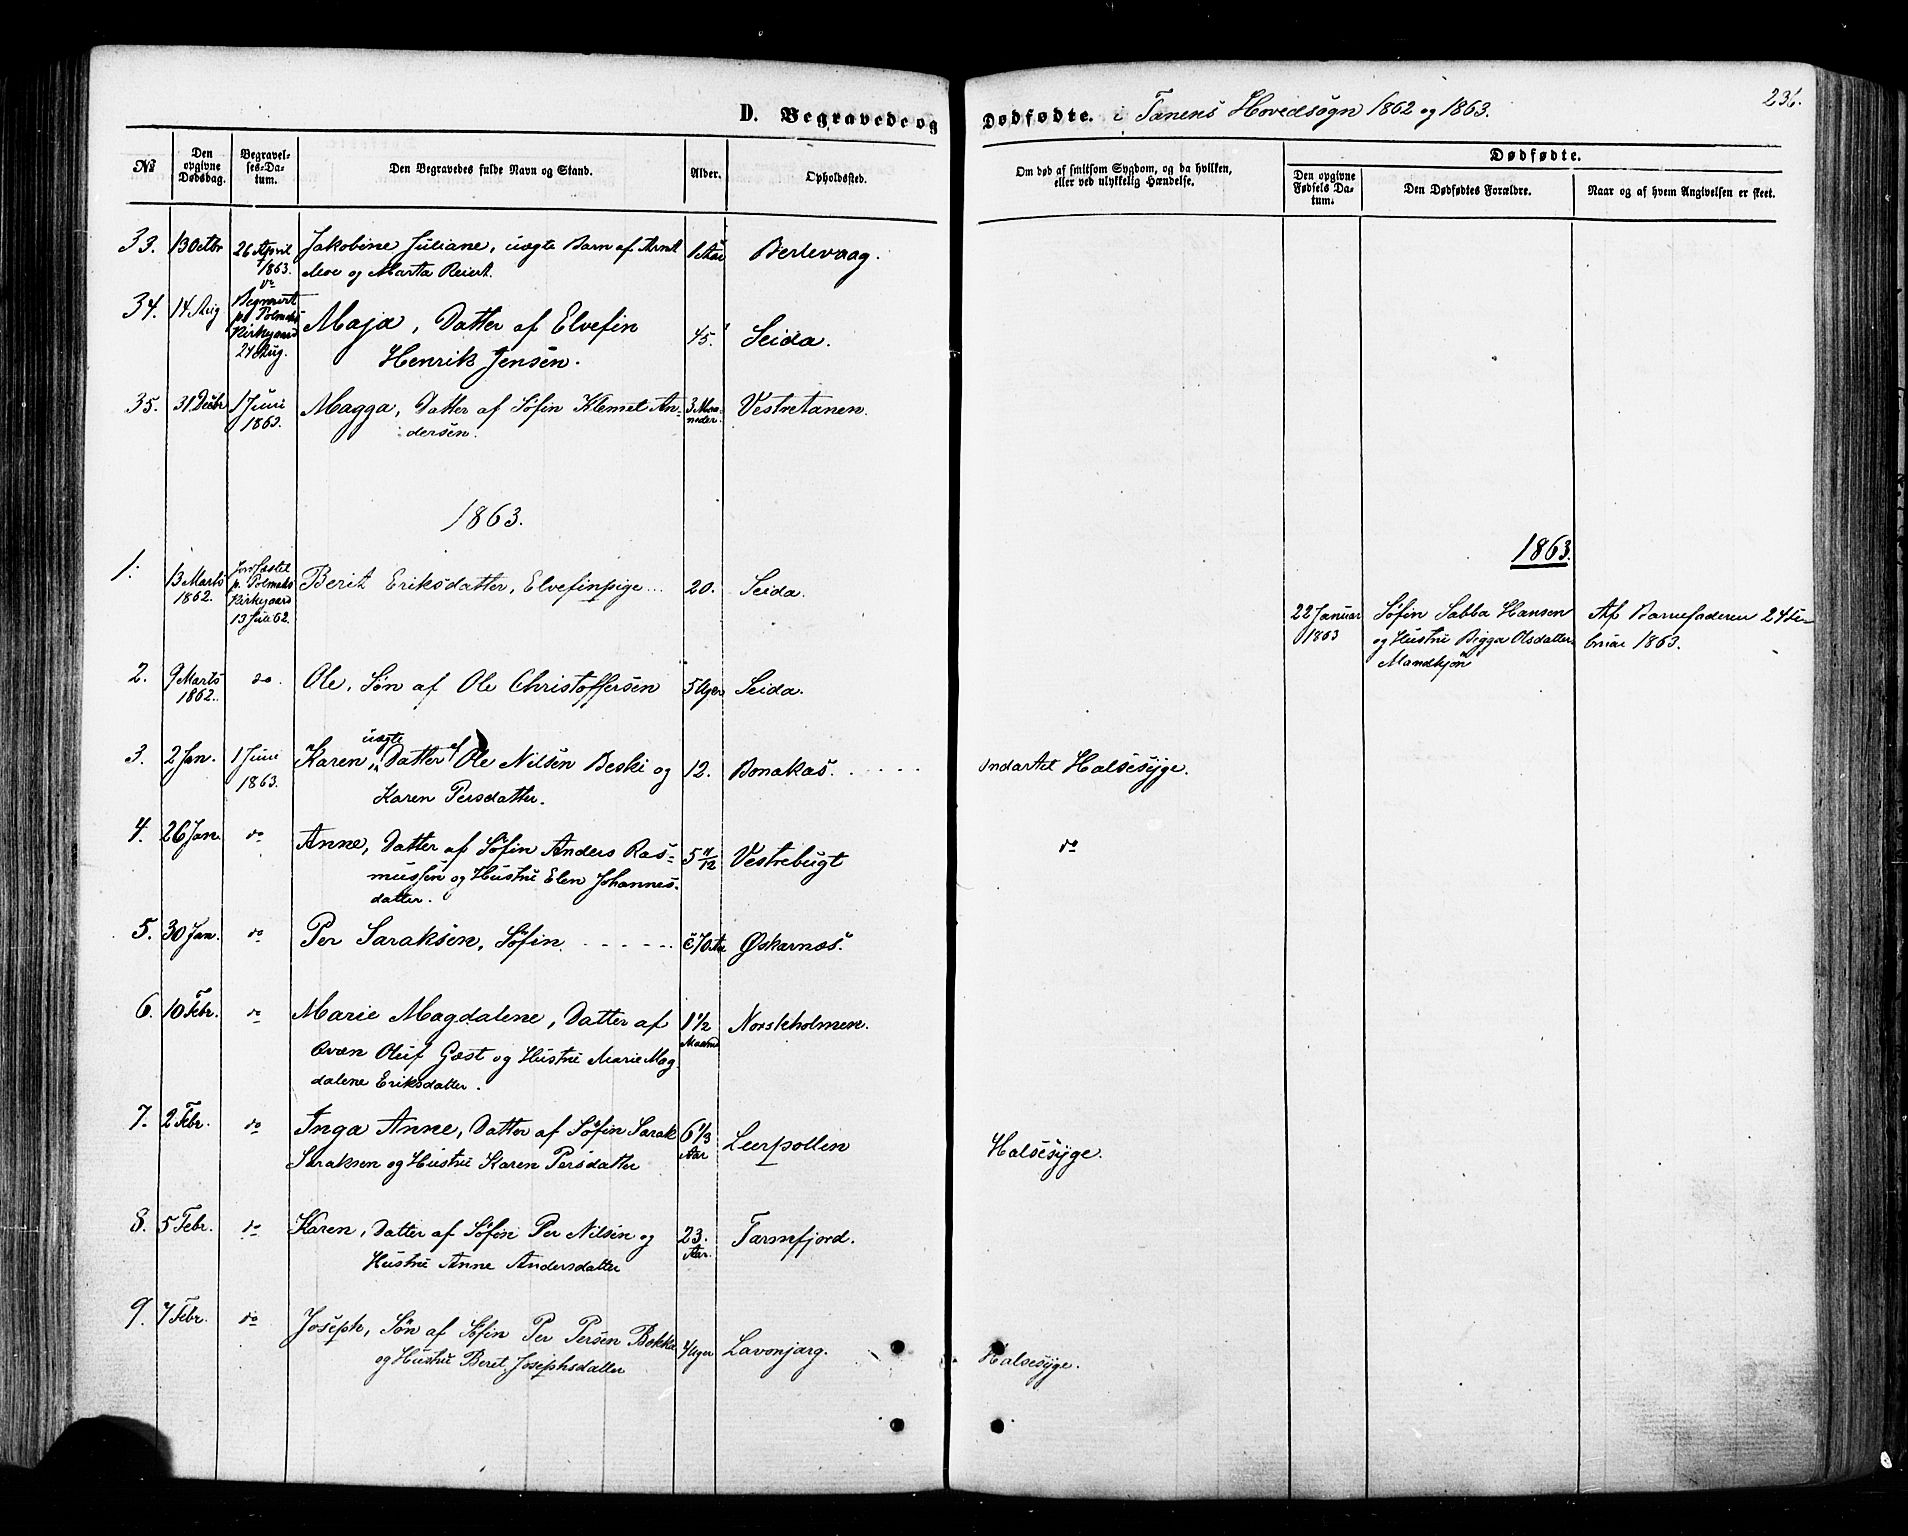 D. Begravede og Dødfødte. i Tanens Hovedsogn 1862 og 1863.
236.
No
Den opgivne Dødsdag.
Begravelses-Datum.
Den Begravedes fulde Navn og Stand.
Alder.
Opholdssted.
Om død af smitsom Sygdom, og da hvilken,
eller ved ulykkelig Hændelse.
Dødfødte.
Den opgivne Fødsels Datum.
Den Dødfødtes Forældre.
Naar og af hvem Angivelsen er skeet.
33. 13 Octbr 26 April 1863. Jakobine Juliane, uægte Barn af Arnt 1 Aar Berlevaag.
Moe og Marta Reiert.
34. 14 Aug do Begravet på Polmaks Kirkegaard 24 Aug. Maja, Datter af Elvefin 45. Seida.
Henrik Jensen.
35. 31 Decbr 1 Juni 1863. Magga, Datter af Søfin Klemet An- 3 Maaneder. Vestretanen.
dersen.
1863.
1863.
1. 13 Marts 1862. Jordfæstet p. Polmaks Kirkegaard 13 Juli 62. Berit Eriksdatter, Elvefinpige... 20. Seida.
22 Januar 1863 Søfin Sabba Hansen Af Barnefaderen 24 Fe-
og Hustru Bigga Olsdatter bruar 1863.
Mandkjøn
2. 9 Marts 1862. do. Ole, Søn af Ole Christoffersen 5 Uger Seida.
3. 2 Jan. 1 Juni 1863. Karen, uægte Datter af Ole Nilsen Beski og 12. Bonakas. Ondartet Halsesyge.
Karen Persdatter.
4. 26 Jan. do Anne, Datter af Søfin Anders Ras- 5 11/12 Vestrebugt do
mussen og Hustru Elen Johannes-
datter.
5. 30 Jan. do Per Saraksen, Søfin. c 70 Aar Øskarnæs.
6. 10 Febr. do Marie Magdalene, Datter af 1 1/2 Maaned Norskholmen.
Qvæn Oluf Gæst og Hustru Marie Mag
dalene Eriksdatter.
7. 2 Febr. do Inga Anne, Datter af Søfin Sarak 6 1/3 Aar Leerpollen Halsesyge.
Saraksen og Hustru Karen Persdatter
8. 5 Febr. do Karen, Datter af Søfin Per Nilsen og 23. Aar. Tarmfjord.
Hustru Anne Andersdatter
9. 7 Febr. do Joseph, Søn af Søfin Per Persen Bokka 4 Uger Lavonjarg. Halsesyge.
og Hustru Beret Josephsdatter